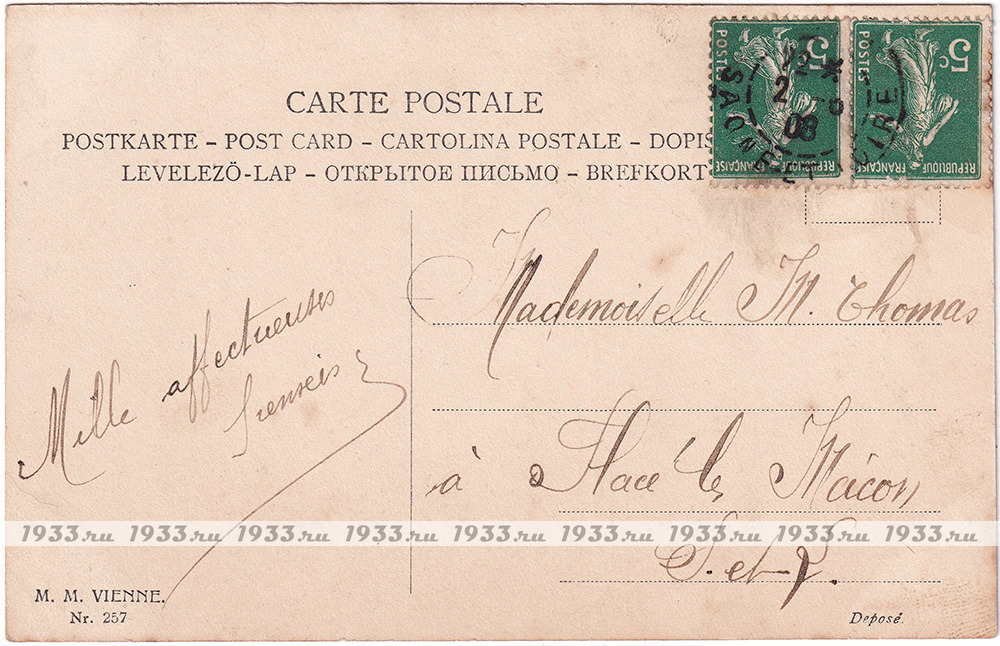 CARTE POSTALE
POSTKARTE – POST CARD – CARTOLINA POSTALE – DOPIS
LEVELEZÖ-LAP – ОТКРЫТОЕ ПИСЬМО – BREFKORT
POSTES 5c
REPUBLIQUE FRANÇAISE
POSTES 5c
REPUBLIQUE FRANÇAISE
SAÔN
2
08
IRE
Mademoiselle M. Thomas
à Flacé les Mâcon
S.-et-L.
Mille affectueuses
1933.ru 1933.ru 1933.ru 1933.ru 1933.ru 1933.ru 1933.ru 1933.ru 1933.ru
M. M. VIENNE.
Nr. 257
Deposé.